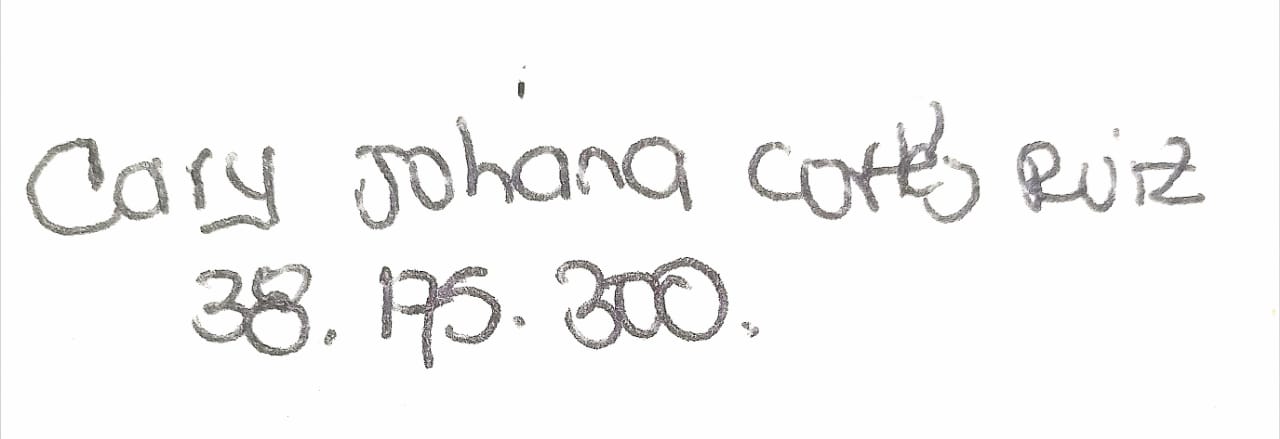 Cary Johana Cortés Ruiz
38.175.300.